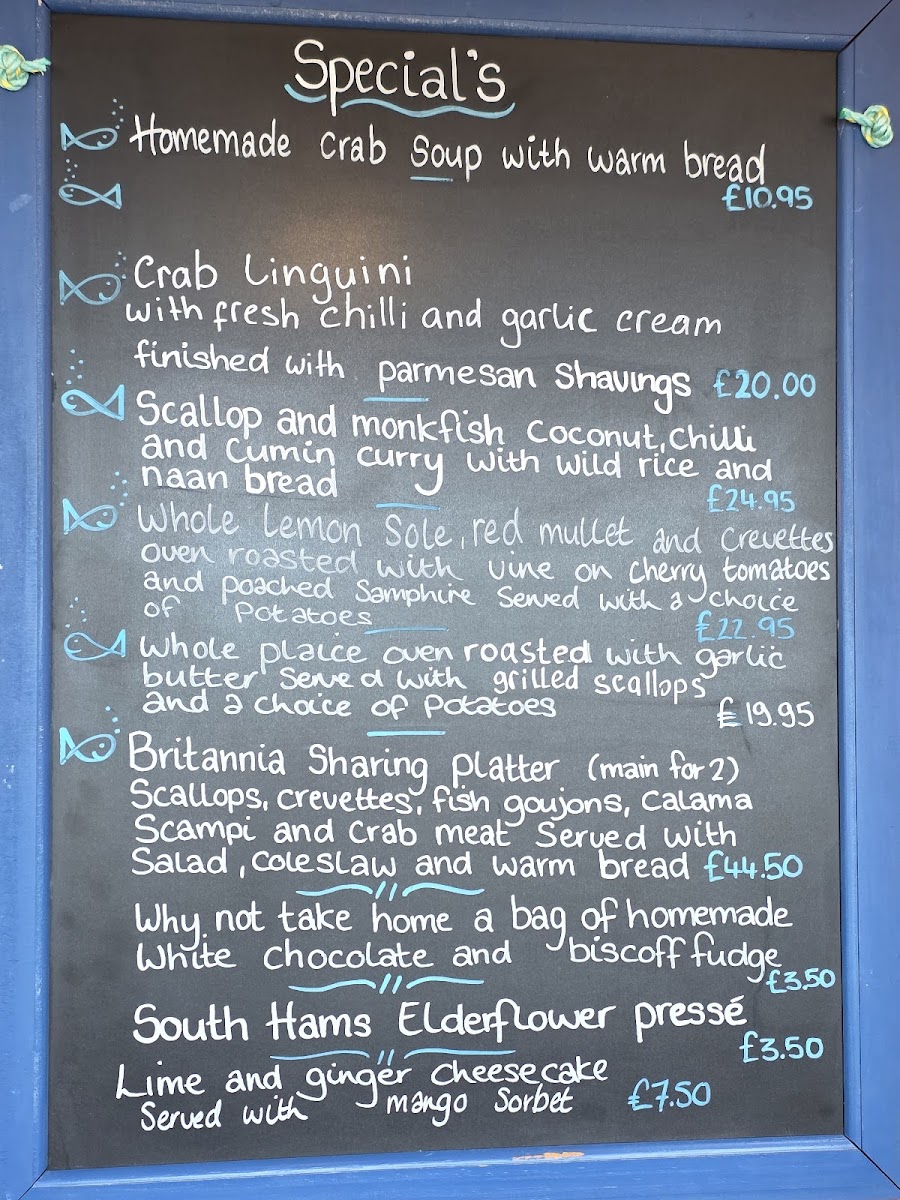 Special's
Homemade crab Soup with warm bread
£10.95
Crab Linguini
with fresh chilli and garlic cream
finished with parmesan Shavings £20.00
Scallop and monkfish Coconut, Chilli
and Cumin curry with wild rice and
naan bread
£24.95
Whole Lemon Sole, red mullet and Crevettes
oven roasted with vine on cherry tomatoes
and poached Samphire Served with a choice
of Potatoes
£22.95
Whole plaice oven roasted with garlic
butter Served with grilled scallops
and a choice of Potatoes
£19.95
Britannia Sharing platter (main for 2)
Scallops, crevettes, fish goujons, Calama
Scampi and Crab meat Served with
Salad, coleslaw and warm bread £44.50
Why not take home a bag of homemade
White chocolate and biscoff fudge
£3.50
South Hams Elderflower pressé
£3.50
Lime and ginger cheesecake
Served with mango Sorbet £7.50